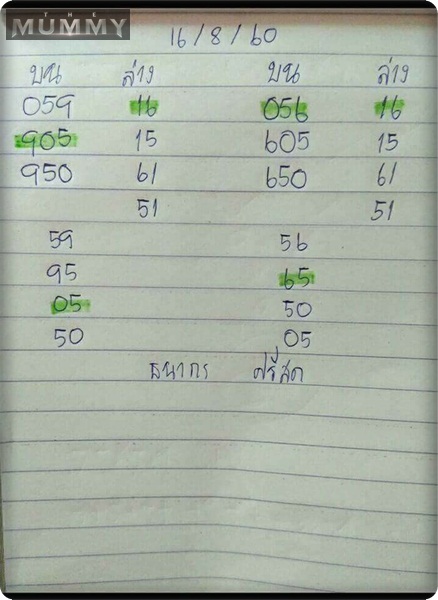 THE
MUMMY
16/8/60
บน ล่าง บน ล่าง
059 16 056 16
905 15 605 15
950 61 650 61
51 51
59 56
95 65
05 50
50 05
ธนากร ศรีสุด